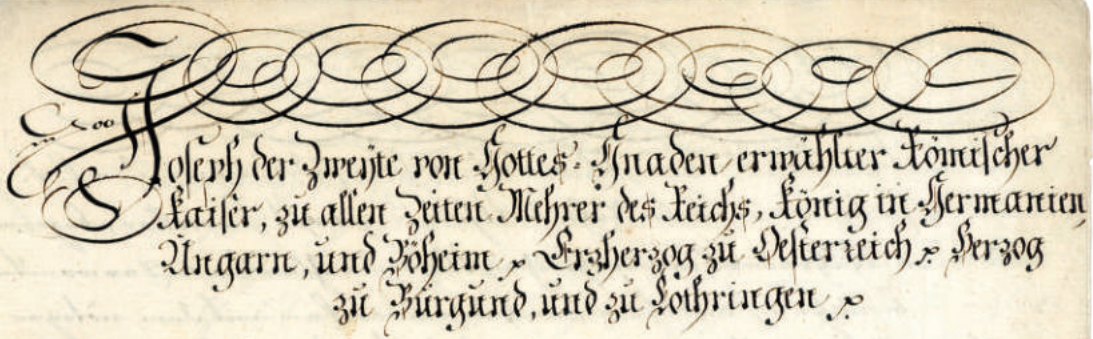 Joseph der Zweyte von Gottes Gnaden erwählter Römischer
Kaiser, zu allen Zeiten Mehrer des Reichs, König in Germanien,
Ungarn, und Böheim ꝛc Erzherzog zu Oesterreich ꝛc Herzog
zu Burgund, und zu Lothringen ꝛc